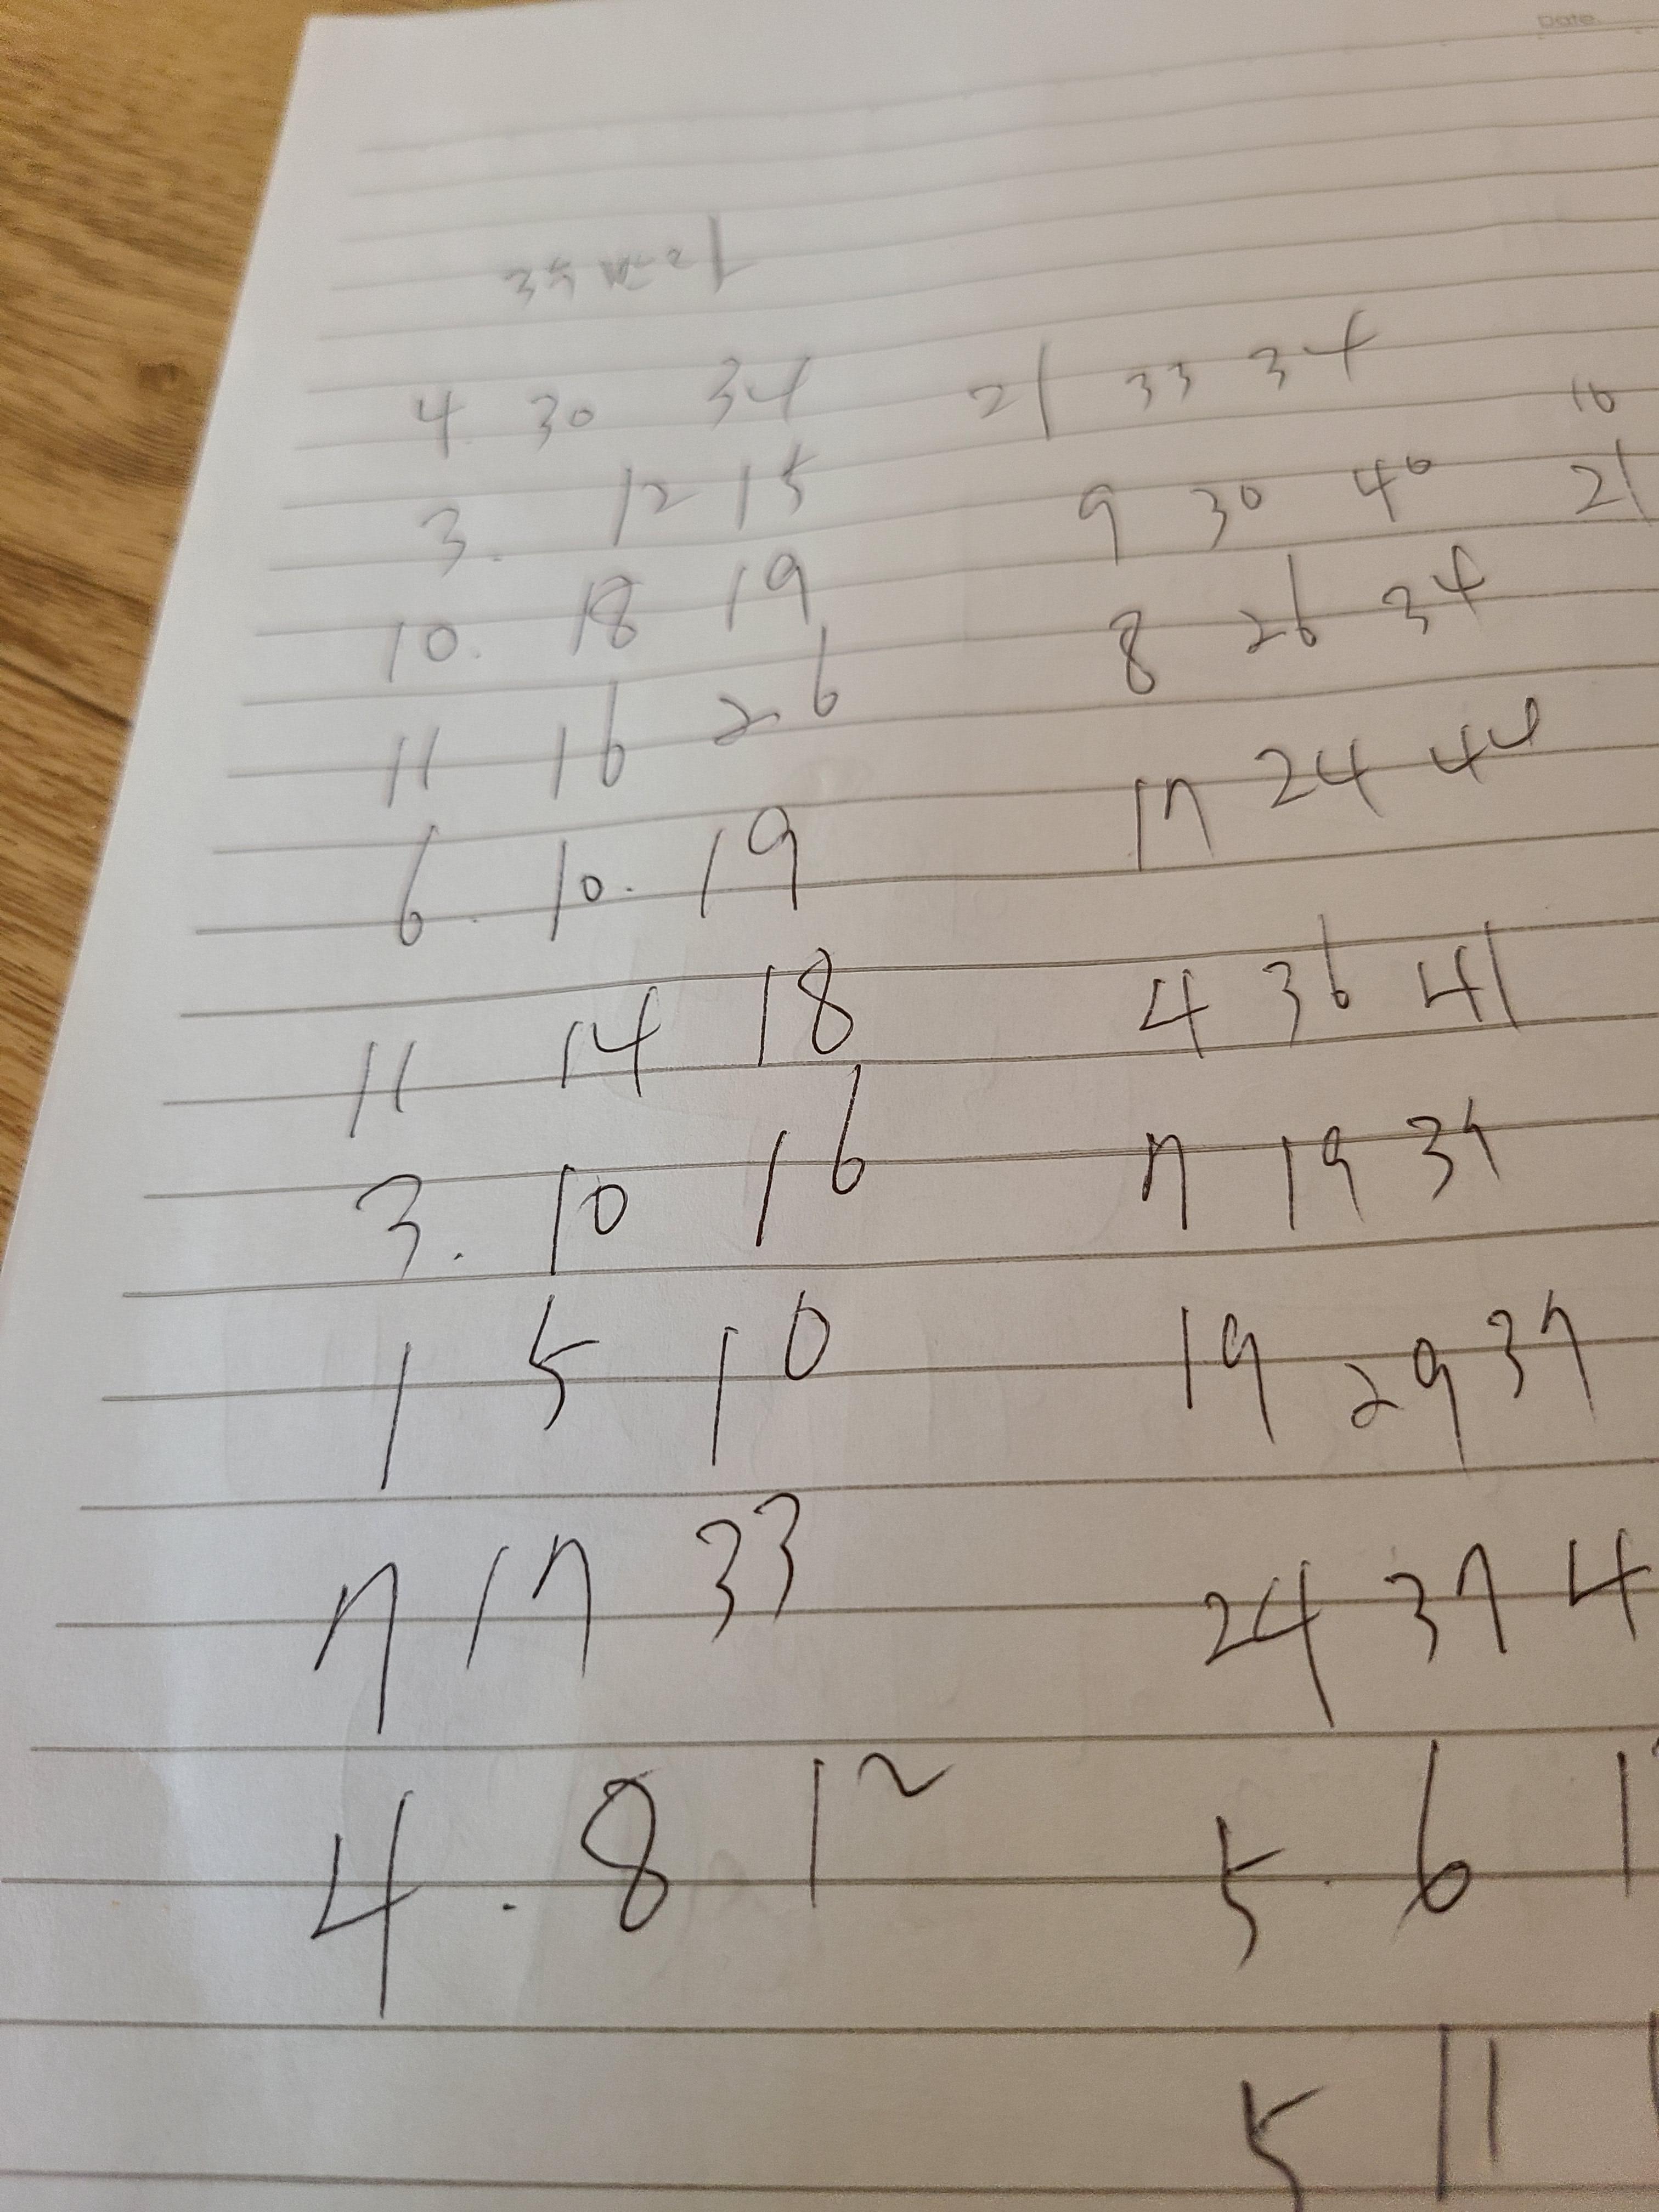 Date
3주 보리
4 30 34 21 33 34
10
3. 12 15 9 30 40 21
10. 18 19 8 26 34
11 16 26 17 24 44
6. 10. 19
11 14 18 4 36 41
3. 10 16 7 19 37
1 5 10 19 29 37
7 17 33 24 37 4
4. 8 12 5. 6
5 11